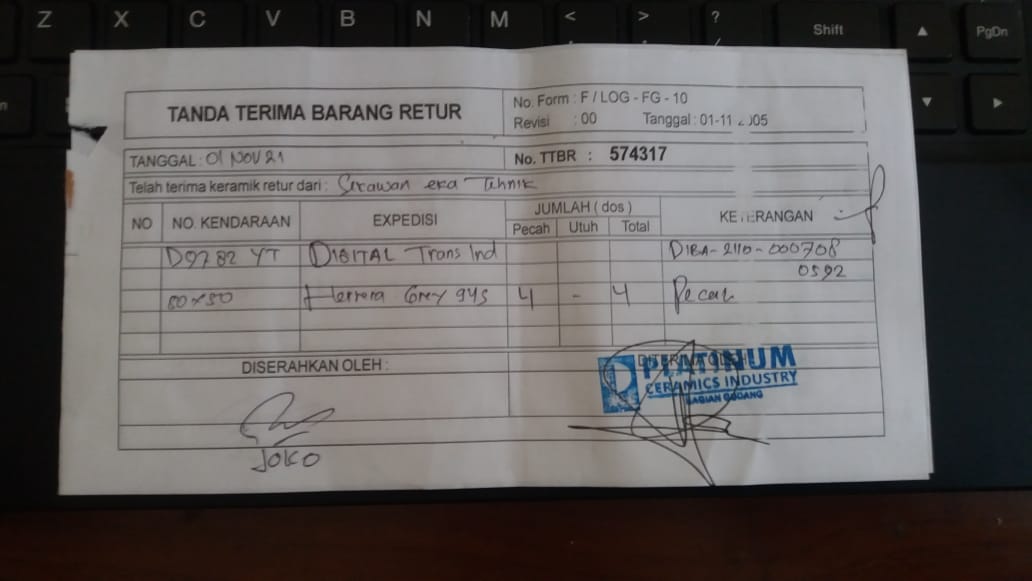 Z X C V B N M < > ? Shift PgDn
TANDA TERIMA BARANG RETUR
No. Form : F / LOG - FG - 10
Revisi : 00 Tanggal : 01-11 2005
TANGGAL : 01 NOV 21
No. TTBR : 574317
Telah terima keramik retur dari : Setiawan eka Tehnik
NO NO. KENDARAAN EXPEDISI JUMLAH ( dos ) KETERANGAN
Pecah Utuh Total
D9782 YT DIGITAL Trans Ind DIBA-2110-000708
0592
50x50 Herrera Grey 4 - 4 Pecah
DISERAHKAN OLEH : DITERIMA OLEH
PLATINUM
CERAMICS INDUSTRY
BAGIAN GUDANG
JOKO